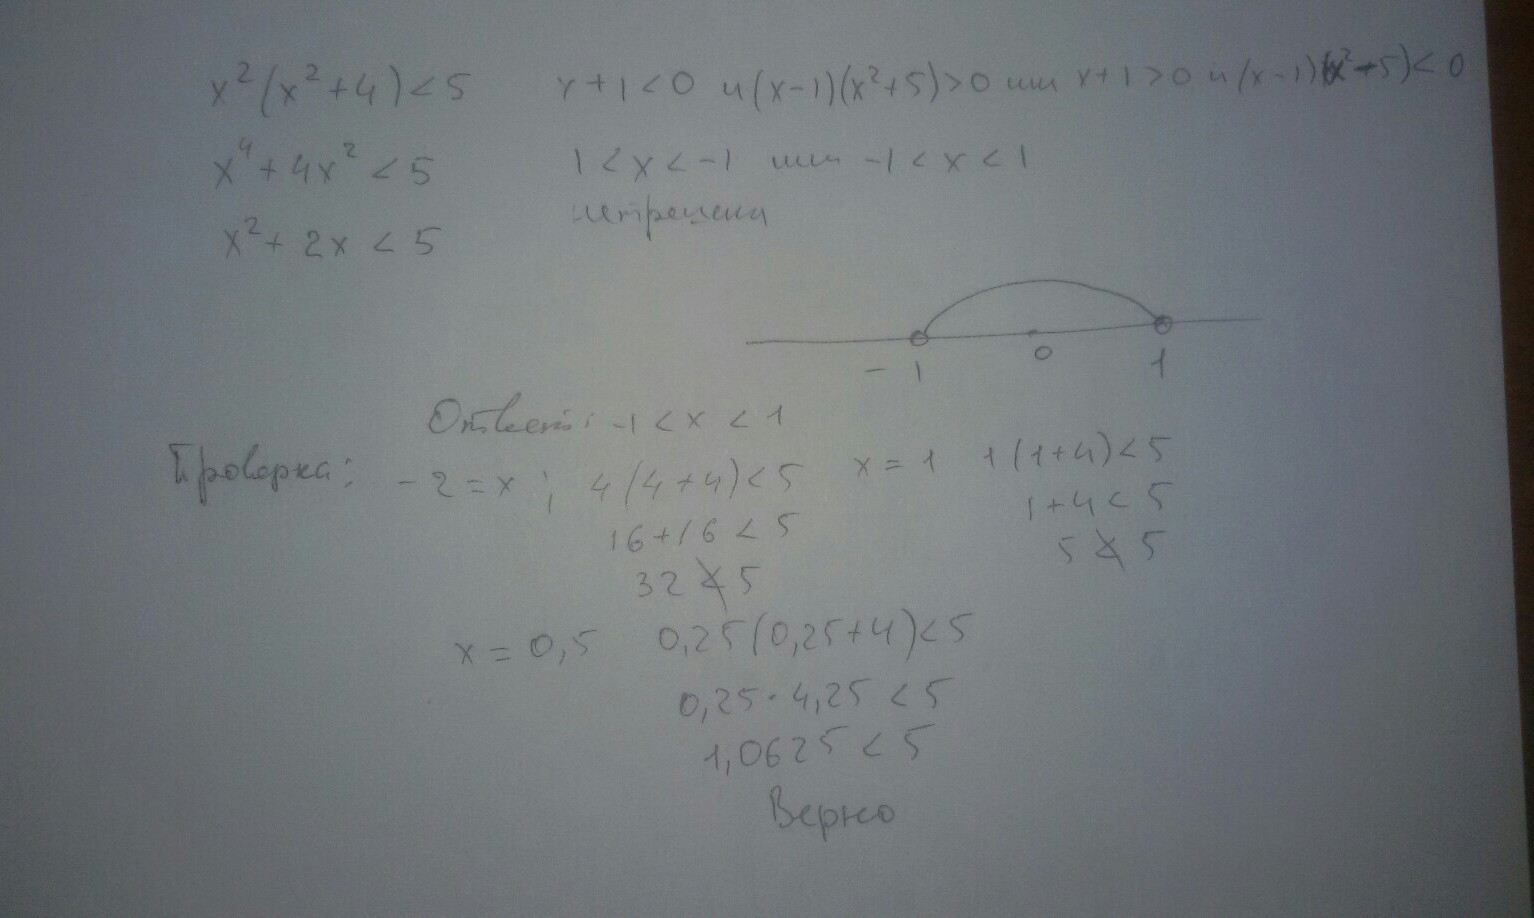 x²(x²+4)<5
x⁴+4x²<5
x²+2x<5
x+1<0 и (x-1)(x²+5)>0 или x+1>0 и (x-1)(x²+5)<0
1<x<-1 или -1<x<1
-1 0 1
Ответ: -1<x<1
Проверка: -2=x; 4(4+4)<5
16+16<5
32≮5
x=1 1(1+4)<5
1+4<5
5≮5
x=0,5 0,25(0,25+4)<5
0,25·4,25<5
1,0625<5
Верно